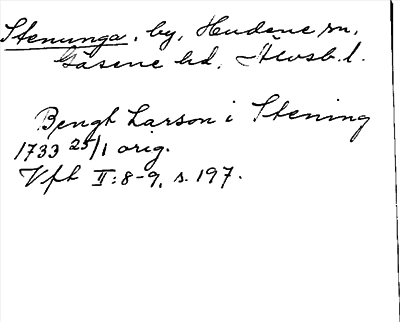 Stenunga, by, Hudene sn,
Gäsene hd, Älvsb. l.
Bengt Larson i Stening
1733 25/1 orig.
Vft II:8-9, s. 197.